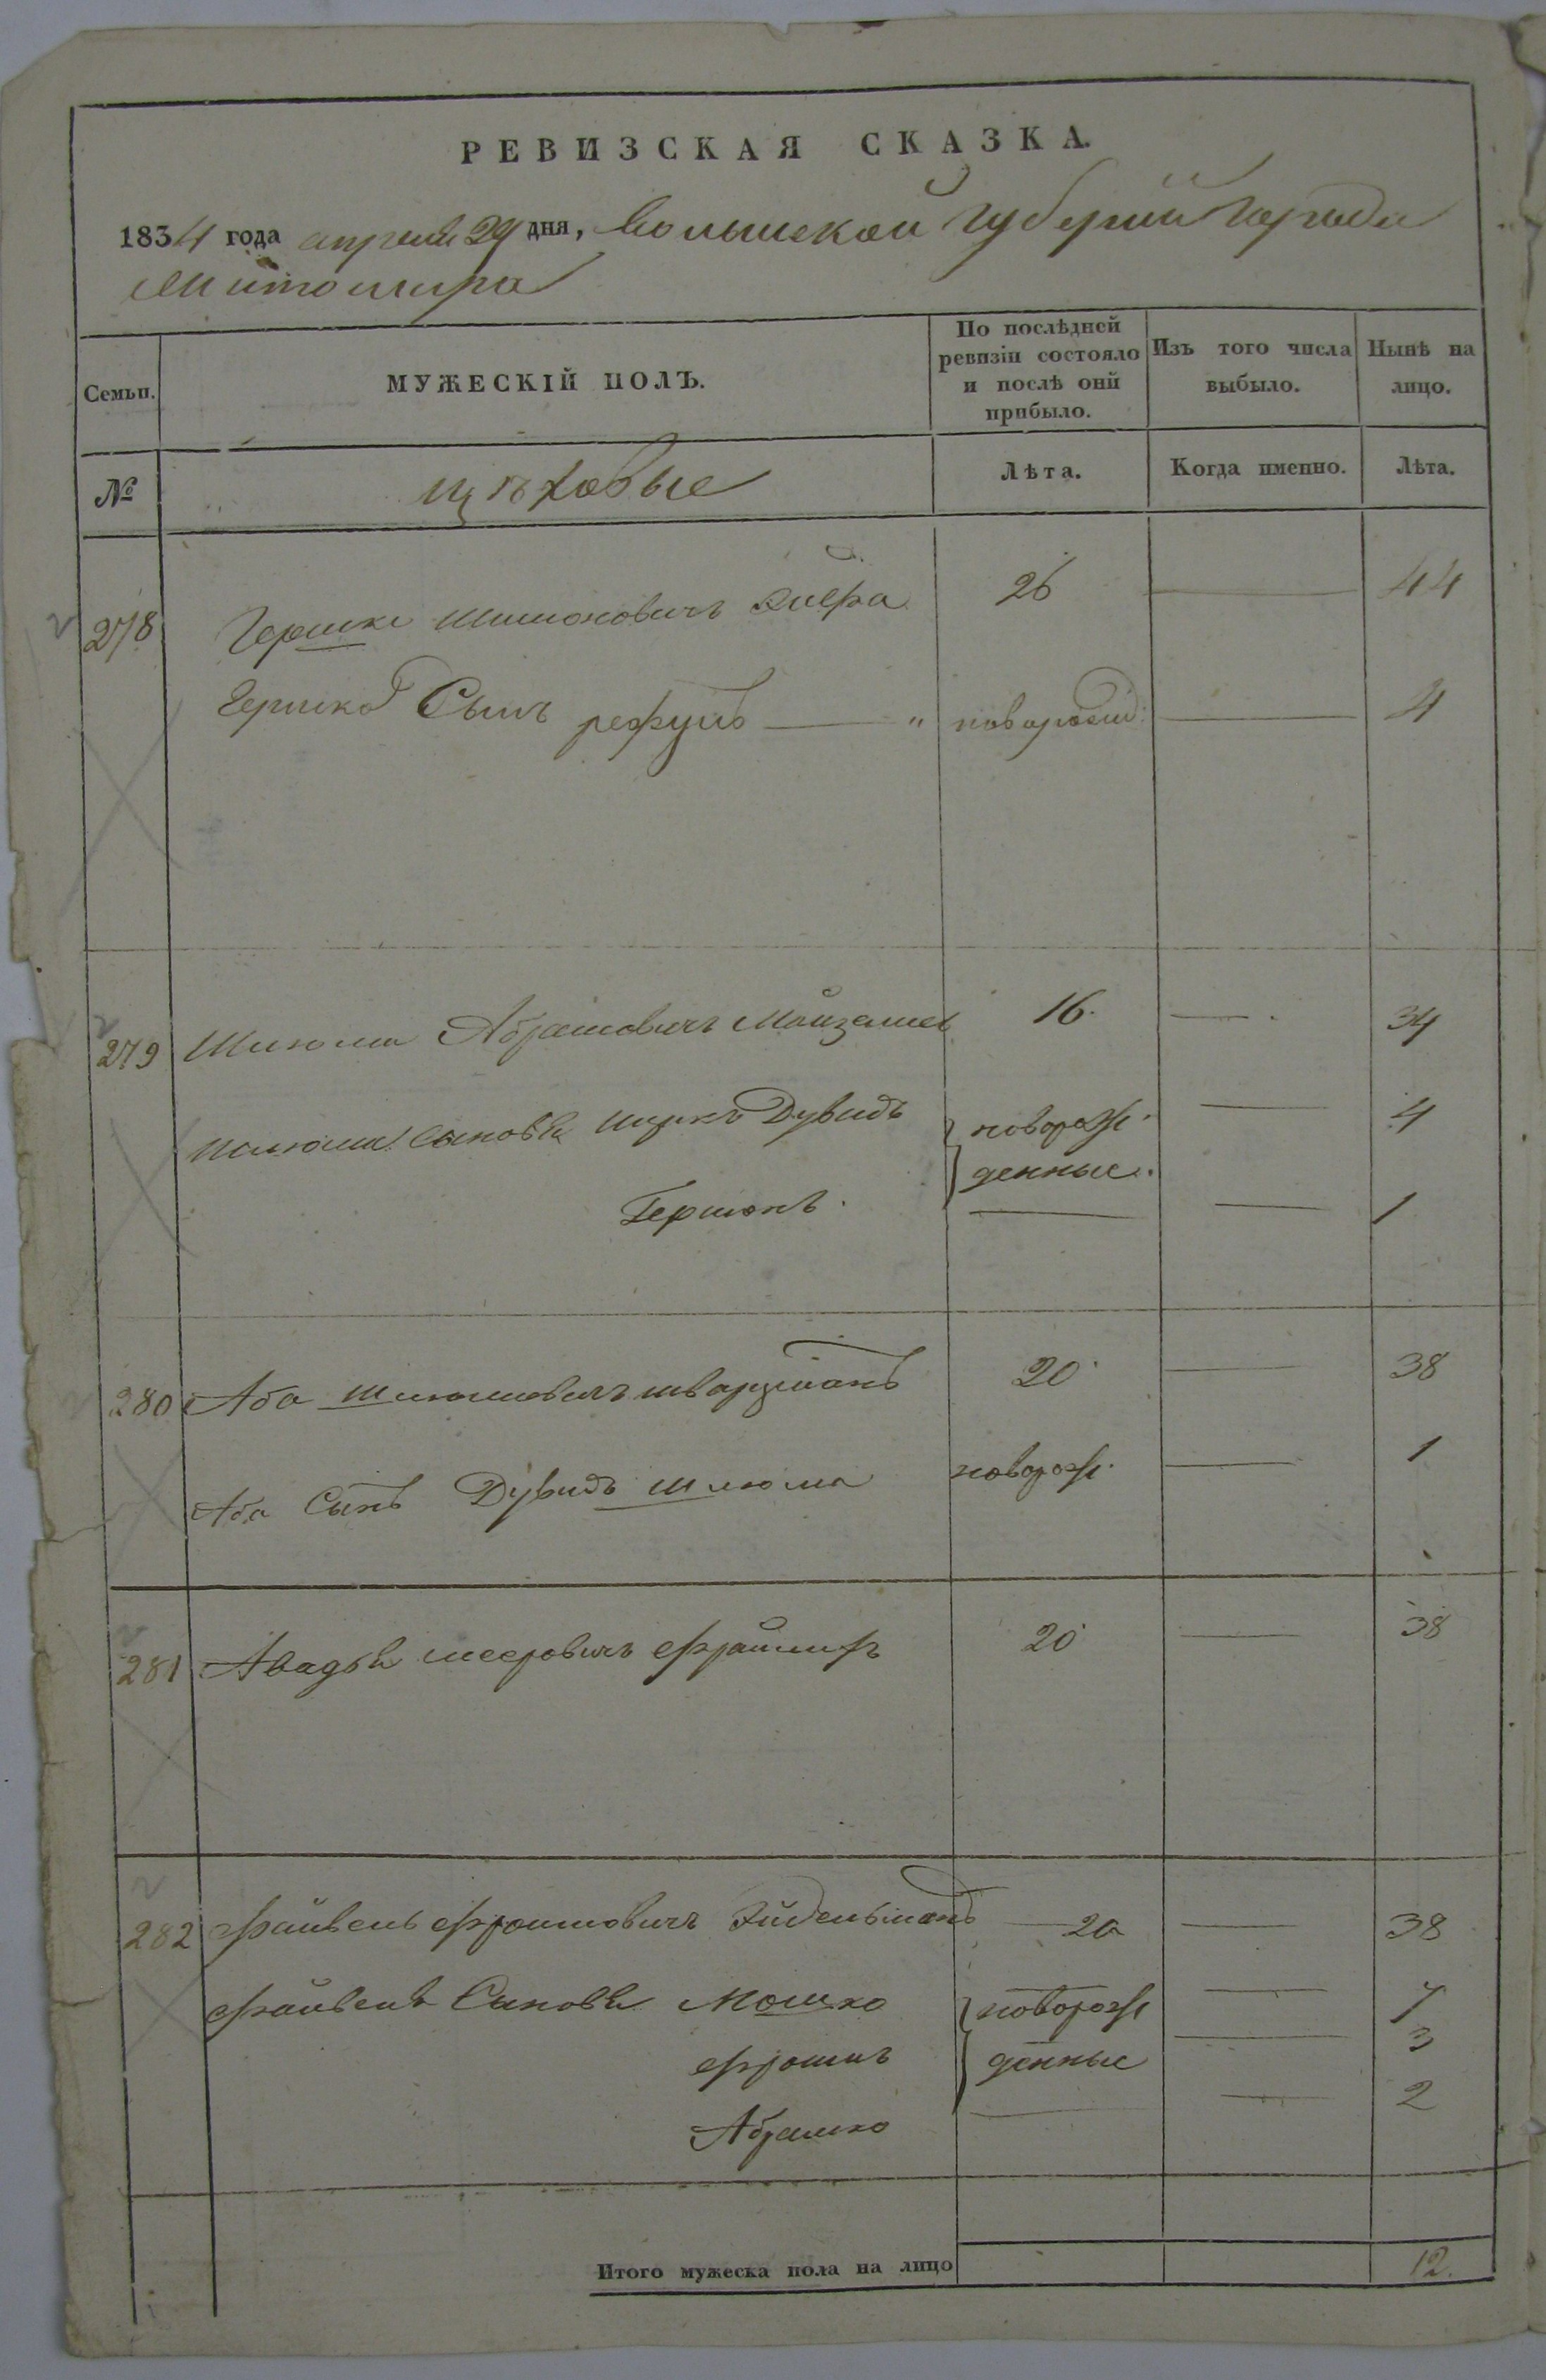 РЕВИЗСКАЯ СКАЗКА.
1834 года апреля 29 дня, Волынской губернии города
Житомира
Семьи.
МУЖЕСКІЙ ПОЛЪ.
По послѣдней ревизіи состояло и послѣ онй прибыло.
Изъ того числа выбыло.
Нынѣ на лицо.
№
цѣховые
Лѣта.
Когда именно.
Лѣта.
278 Гершко Шимоновичъ 26 44
Гершка Сынъ рефулъ " новорожд: 4
279 Шлюма Абрамовичъ 16. 34
Шлюмы Сыновья Ицикъ Дувидъ новорож- 4
денные.
Гершонъ. 1
280 Аба Шлюмовичъ шварцманъ 20 38
Аба Сынъ Дувидъ Шлюма новорож. 1
281 Авадья мееровичъ 20 38
282 Файвель Фроимовичъ Эйдельманъ 20 38
Файвеля Сыновья Мошко новорож 7
Фроимъ денные 3
Абрамко 2
Итого мужеска пола на лицо 12.